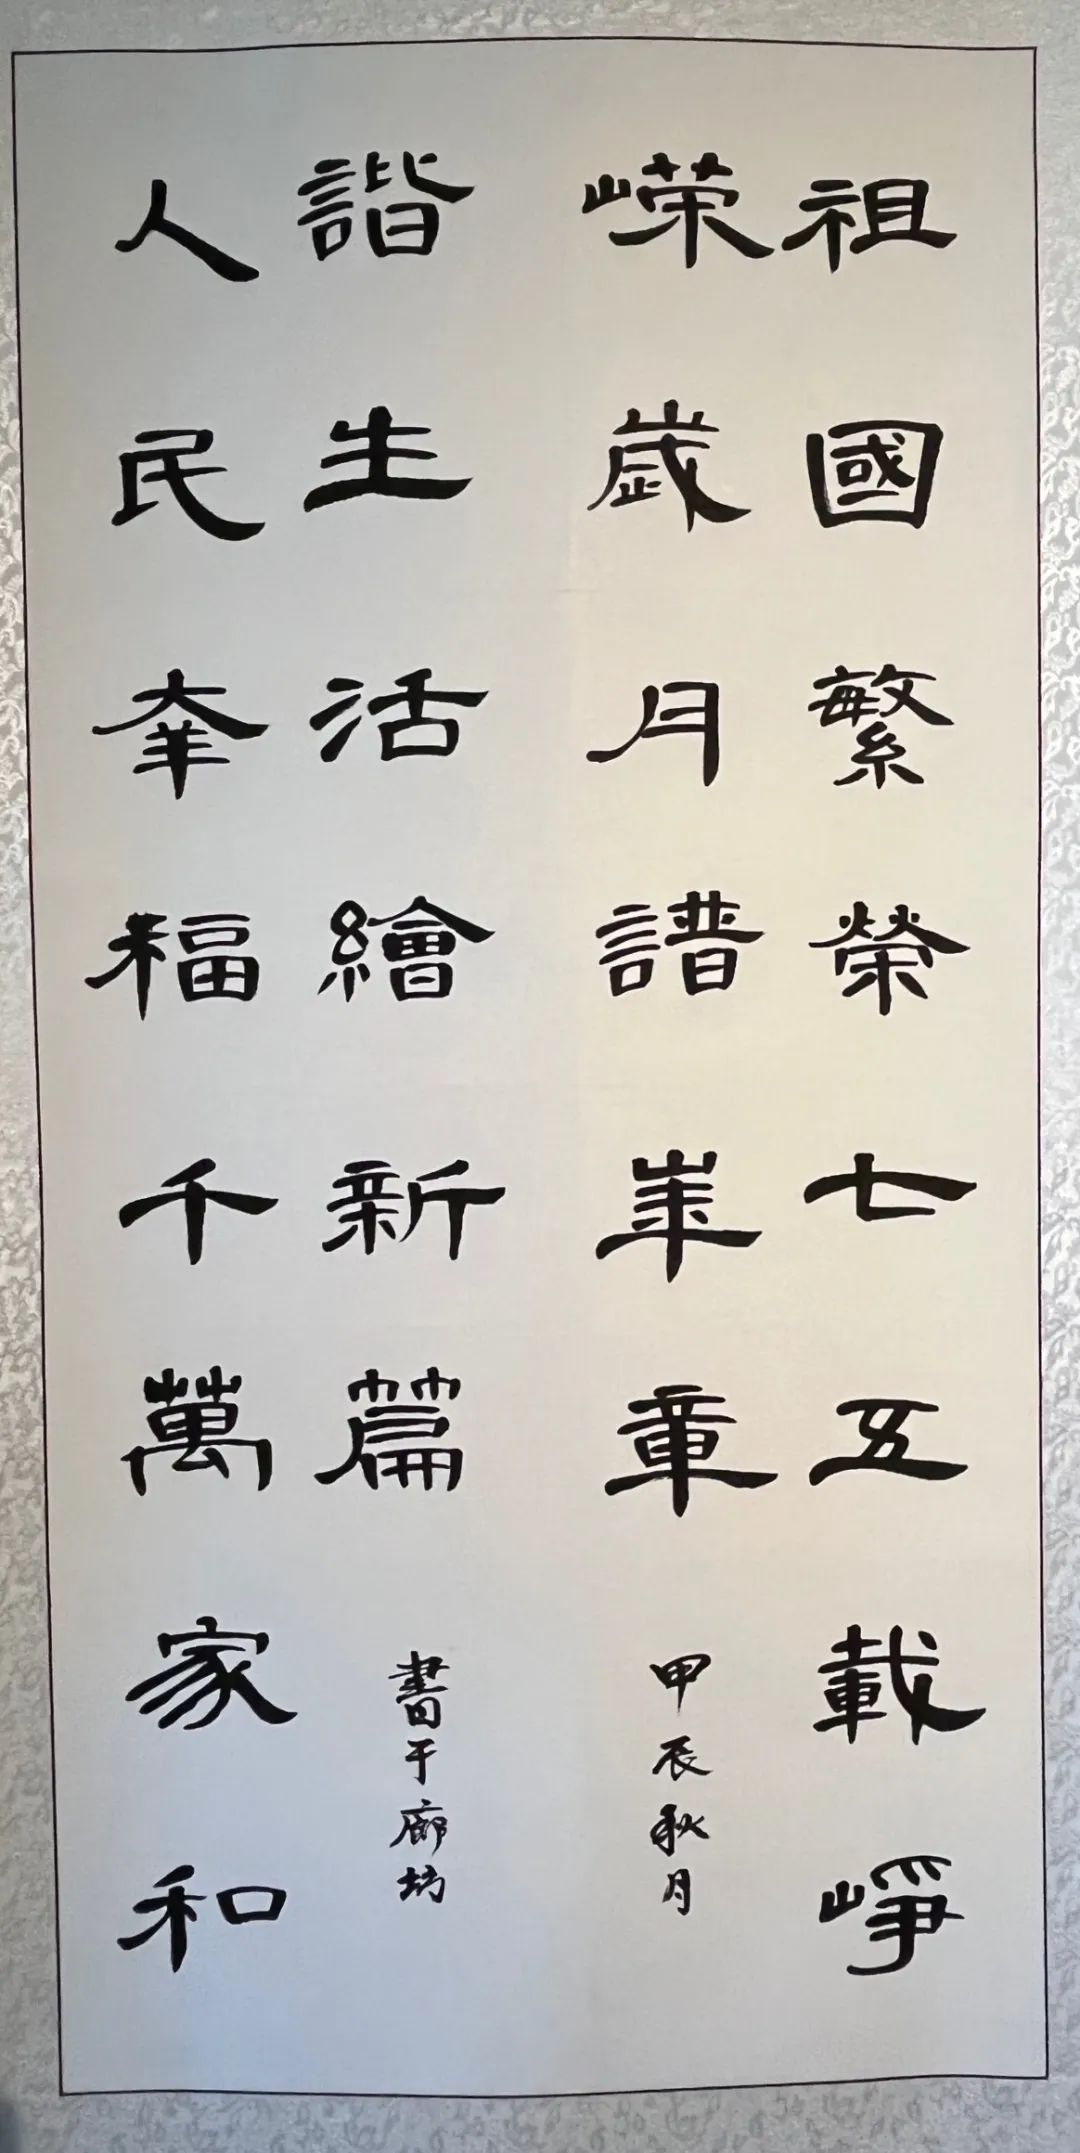 祖國繁榮七五載崢
嵘歲月譜華章
甲辰秋月
人民幸福千萬家和
諧生活繪新篇
書于廊坊